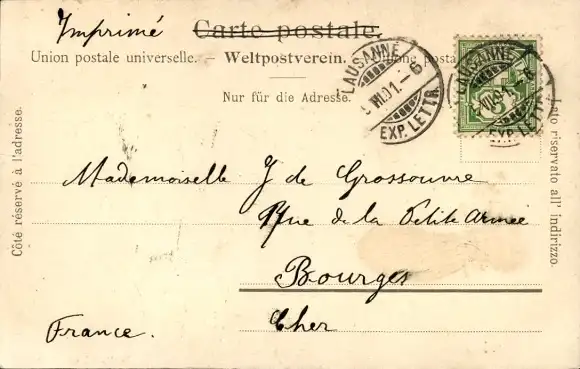 Imprimé Carte postale.
Union postale universelle. — Weltpostverein. — Unione posta
Nur für die Adresse.
LAUSANNE
VII.01. - 6
EXP. LETTR.
LAUSANNE
VII.01. 6
EXP. LETTR.
Côté réservé à l'adresse.
Lato riservato all' indirizzo.
Mademoiselle J de Grossouvre
Rue de la Petite Armée
Bourges
Cher
France.